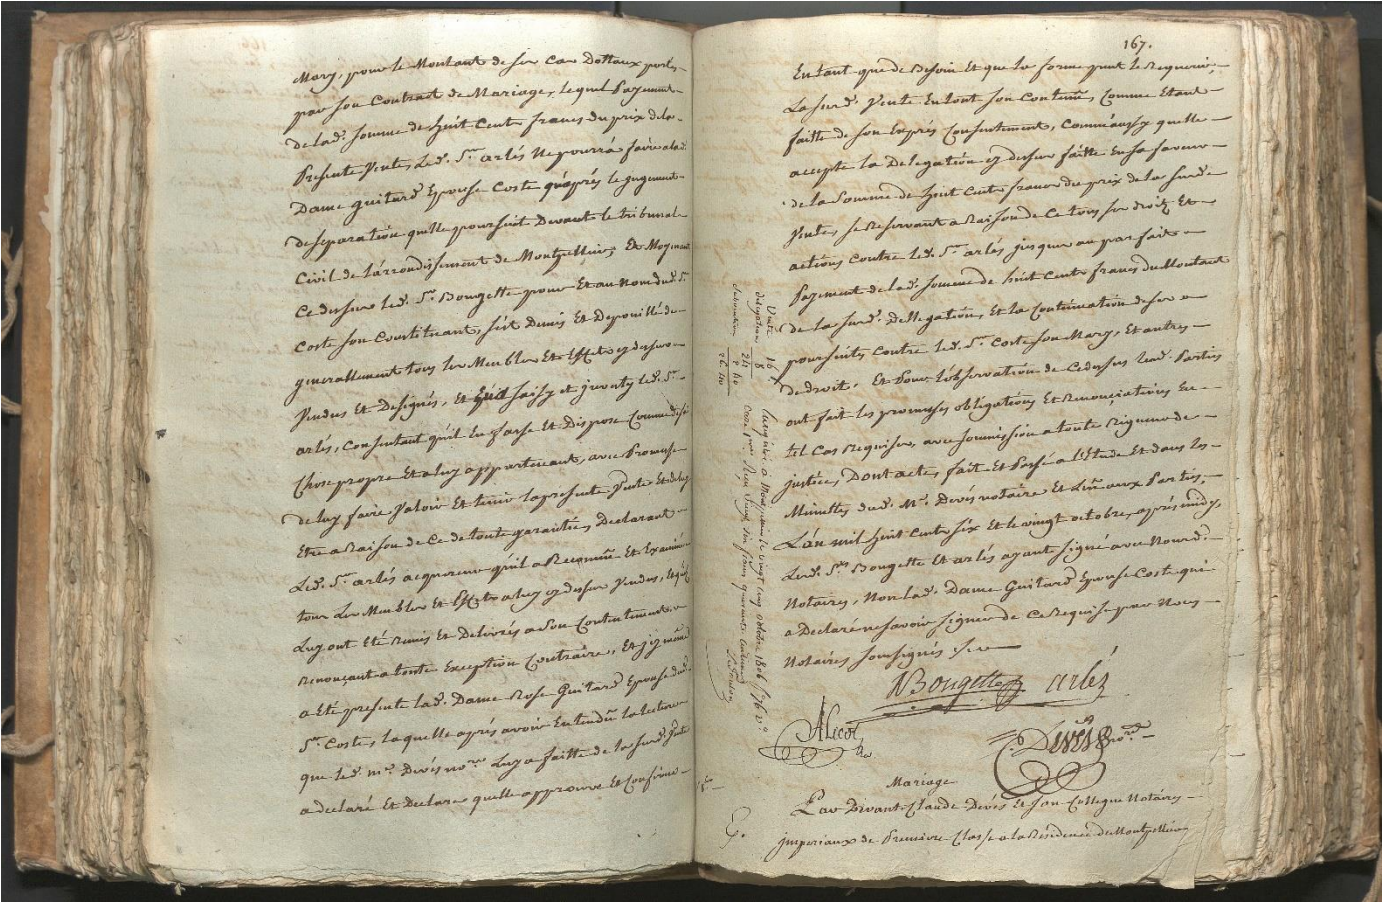 Mary, pour le Montant de ses cas Dottaux portés
par son Contract de Mariage, lequel Payement
de lad. somme de huit Cent francs du prix de la
Presente Vente, Led. Sr. arlés Ne pourra faire a lad.
Dame Guitard Epouse Coste qu'aprés le Jugement
de separation quelle poursuit Devant le tribunal
Civil de l'arrondissement de Montpellier, Et Moyenant
Ce dessus led. Sr. Bougette pour Et au Nom dud. Sr.
Coste son Constituant, s'est Demis Et Depouillé de
generallement tous les Meubles Et Effets cy dessus
Vendus Et Designés, et en a saisy et investy led. Sr.
arlés, Consentant qu'il En fasse Et Dispose Comme de sa
Chose propre Et a luy appartenant, avec Promesse
de luy faire Valoir Et tenir la presente Vente Et de luy
Etre a Raison de Ce de toute garantie, Declarant
Led. Sr. arlés acquereur qu'il a Reconnu Et Examiné
tous Les Meubles Et Effets a luy cy dessus Vendus, Et qu'ils
Luy ont Eté Remis Et Delivrés a Son Contentement
Renonçant a toute Exception Contraire, Et
a Eté presente lad. Dame Rose Guitard Epouse dud.
Sr. Coste, laquelle aprés avoir Entendu la lecture
que led. Me. Devés nore. Luy a faitte de la susd. Vente
a declaré Et Declare quelle approuve Et Confirme
167.
En tant que de Besoin Et que la forme peut le Requerir,
La susd. Vente En tout son Contenu, Comme Etant
faitte de son Exprés Consentement, Comme aussy quelle
accepte la Delegation cy dessus faitte En sa faveur
de la Somme de huit Cent francs du prix de la susd.
Vente, se Reservant a Raison de Ce tous ses droits Et
actions Contre led. Sr. arlés jusques au parfait
Payement de lad. somme de huit Cent francs du Montant
de la susd. Dellegation, Et la Continuation de ses
poursuites Contre led. Sr. Coste son Mary, Et autres
de droit. Et Pour l'observation de Ce dessus lesd. Parties
ont fait les promesses obligations Et Renonciations En
tel Cas Requises, avec soumission a toute Rigueur de
justice, Dont acte, fait Et Passé a l'Etude Et dans les
Minuttes dud. Me. Devés notaire Et Lû aux Parties,
L'an mil huit Cent six Et le vingt octobre, aprés midy,
Lesd. Srs. Bougette Et arlés ayant Signé avec Nousd.
Notaires, Non lad. Dame Guitard Epouse Coste qui
a Declaré ne savoir signer de Ce Requise par Nous
Notaires soussignés
Bougette arlés
Alicot
no
Devés nore.
Vente 16
delegation 8
24
subvention 2 40
26 40
Enregistré à Montpellier le vingt cinq octobre 1806 f° 76 v°
vingt six francs quarante centimes
Mariage
Par Devant Claude Devés Et son Collegue Notaires
imperiaux de Premiere Classe a la Residence de Montpellier